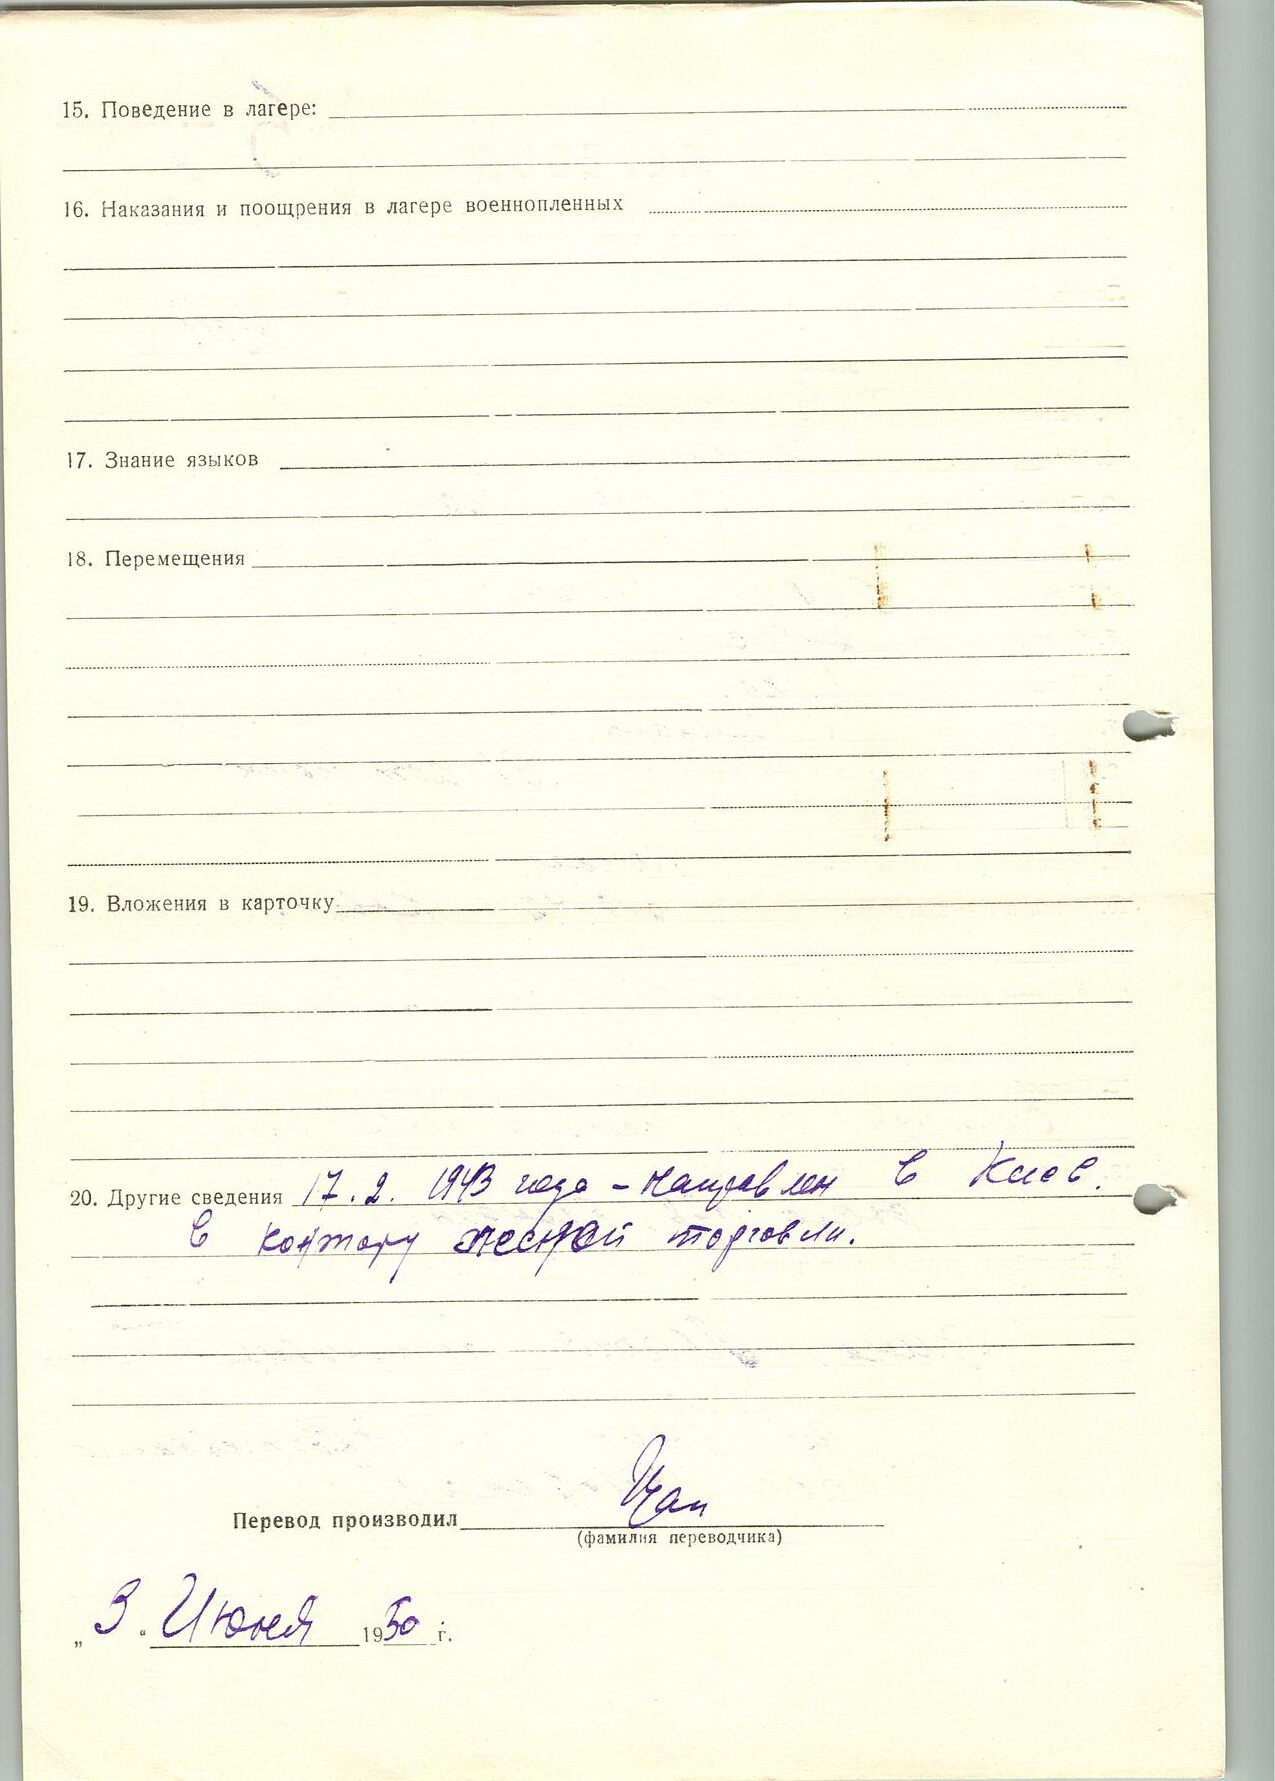 15. Поведение в лагере:
16. Наказания и поощрения в лагере военнопленных
17. Знание языков
18. Перемещения
19. Вложения в карточку
20. Другие сведения 17.2. 1943 года – направлен в Киев.
в контору лесной торговли.
Перевод производил
(фамилия переводчика)
„3“ Июня 1950 г.